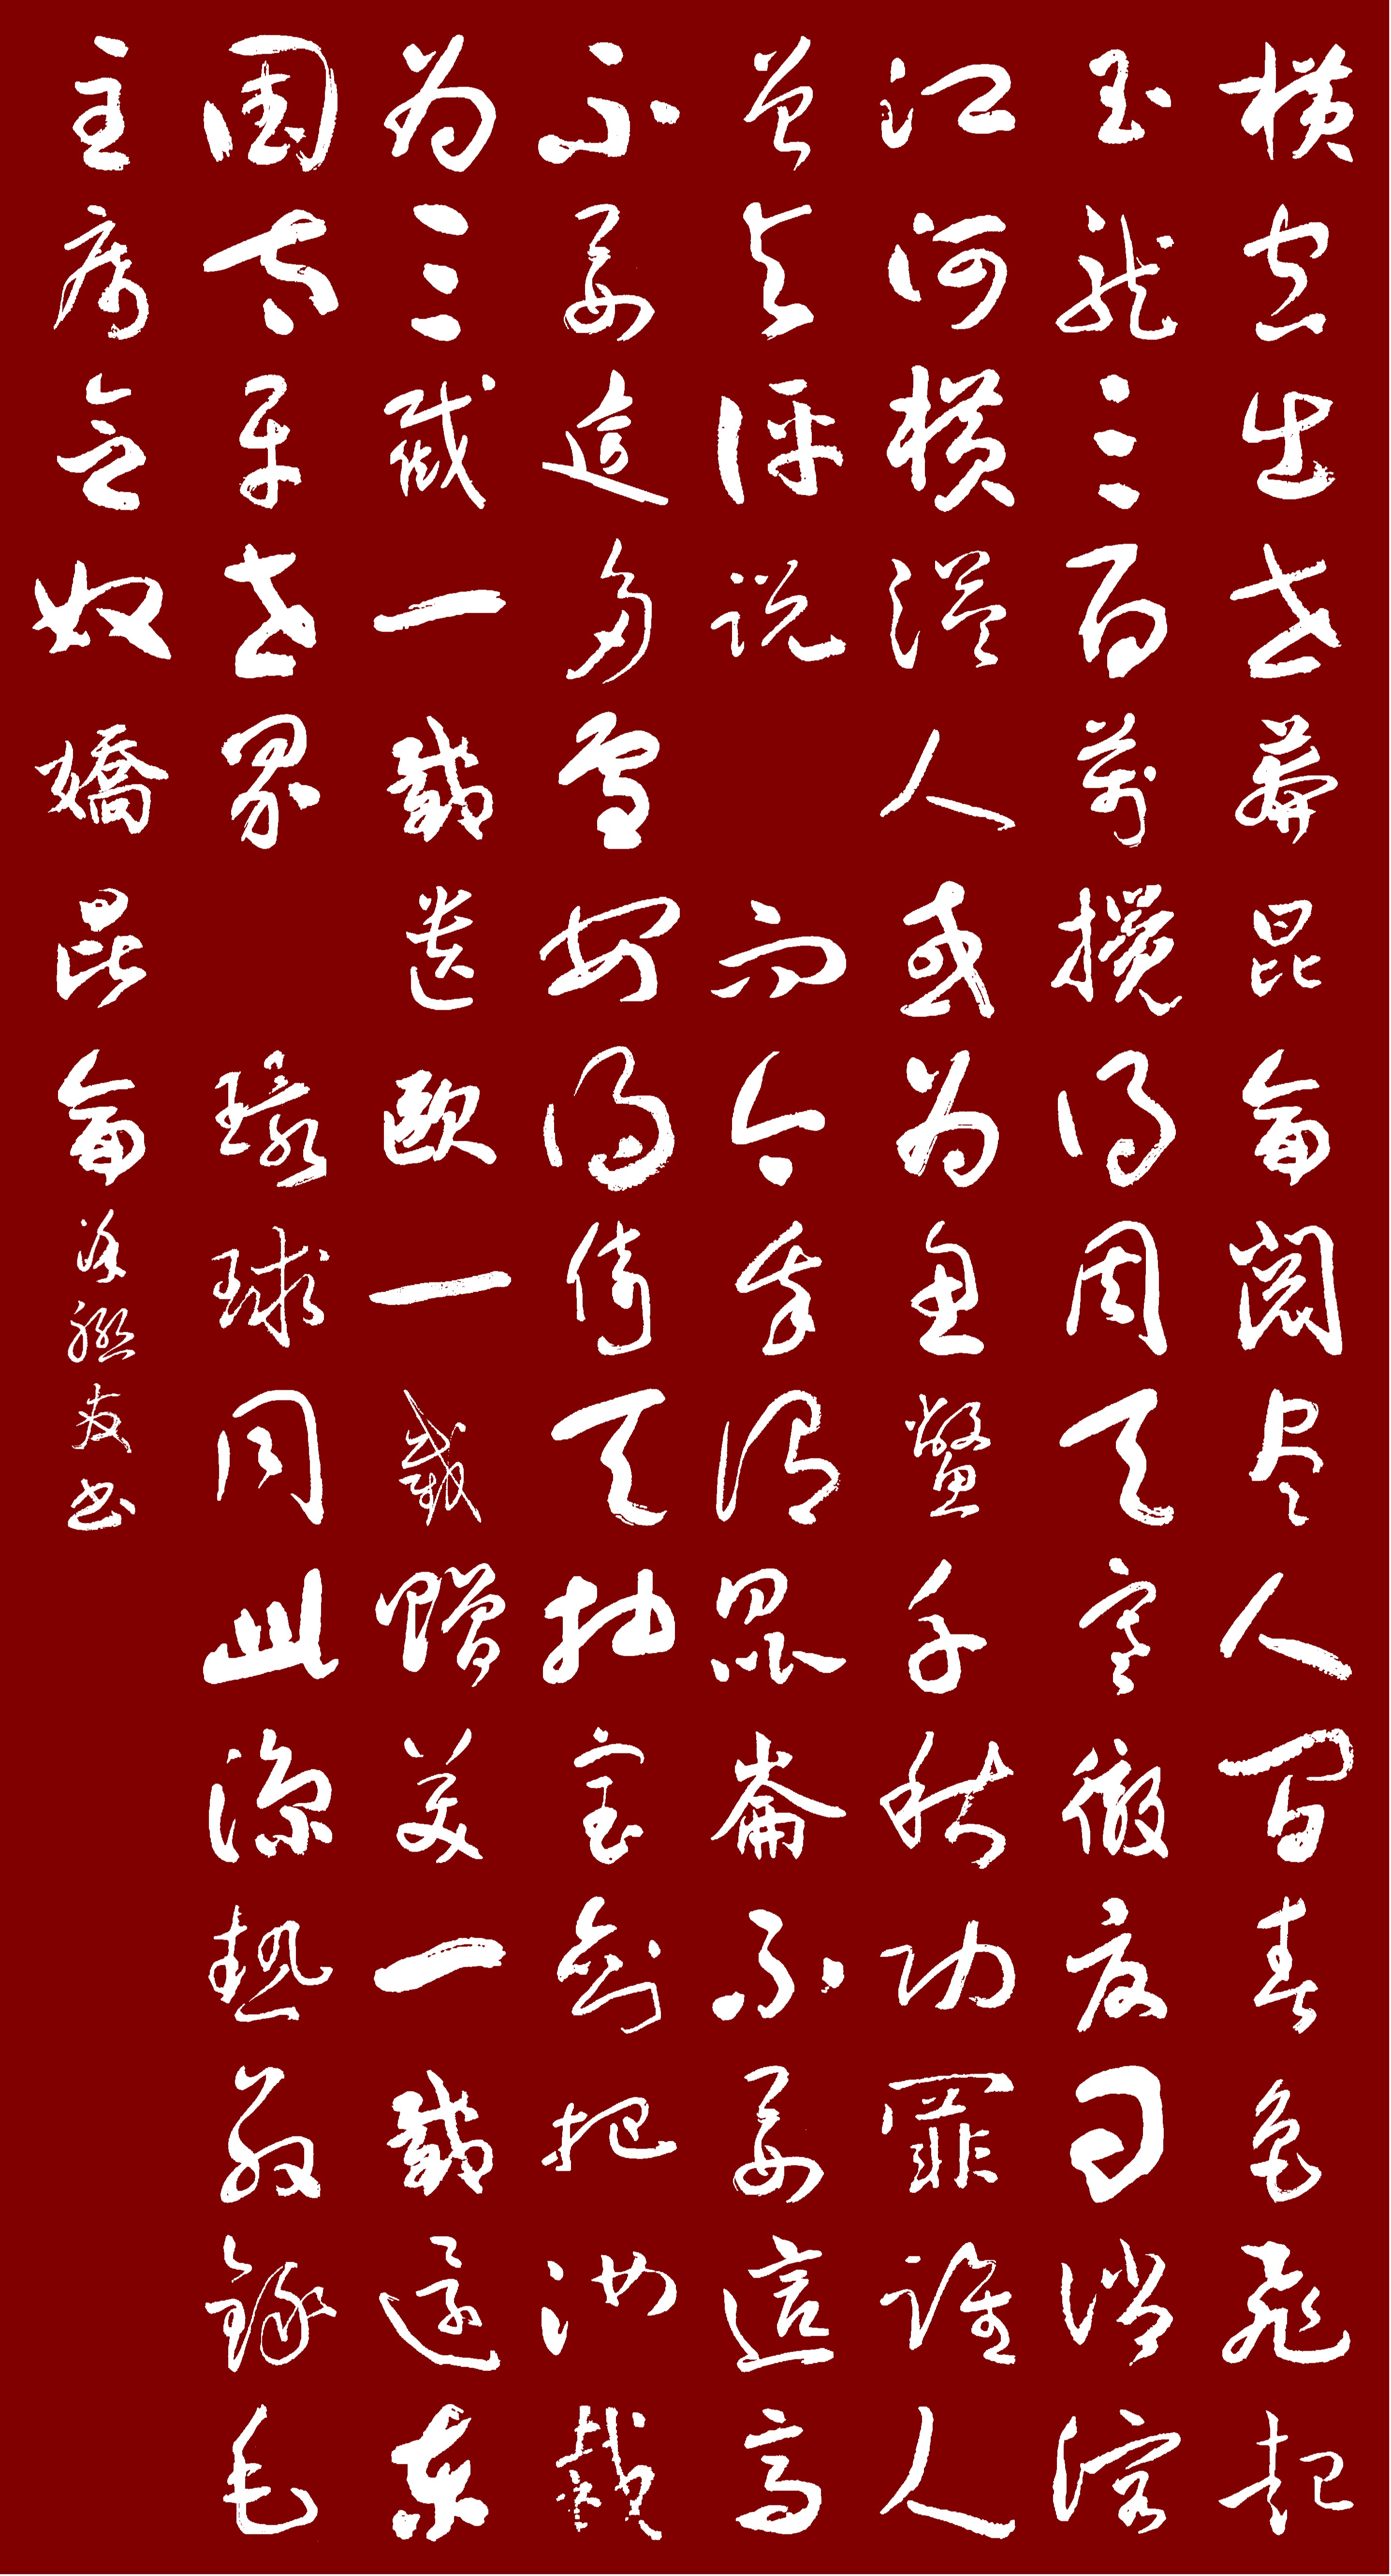 横空出世莽昆侖阅尽人间春色飛起
玉龙三百萬攪得周天寒徹夏日消溶
江河横溢人或为魚鳖千秋功罪谁人
曾与评说 而今我谓昆崙不要這高
不要這多雪安得倚天抽宝剑把汝裁
为三截一截遗欧一截赠美一截还东
国太平世界 环球同此凉热敬録毛
主席念奴嬌昆侖 友书